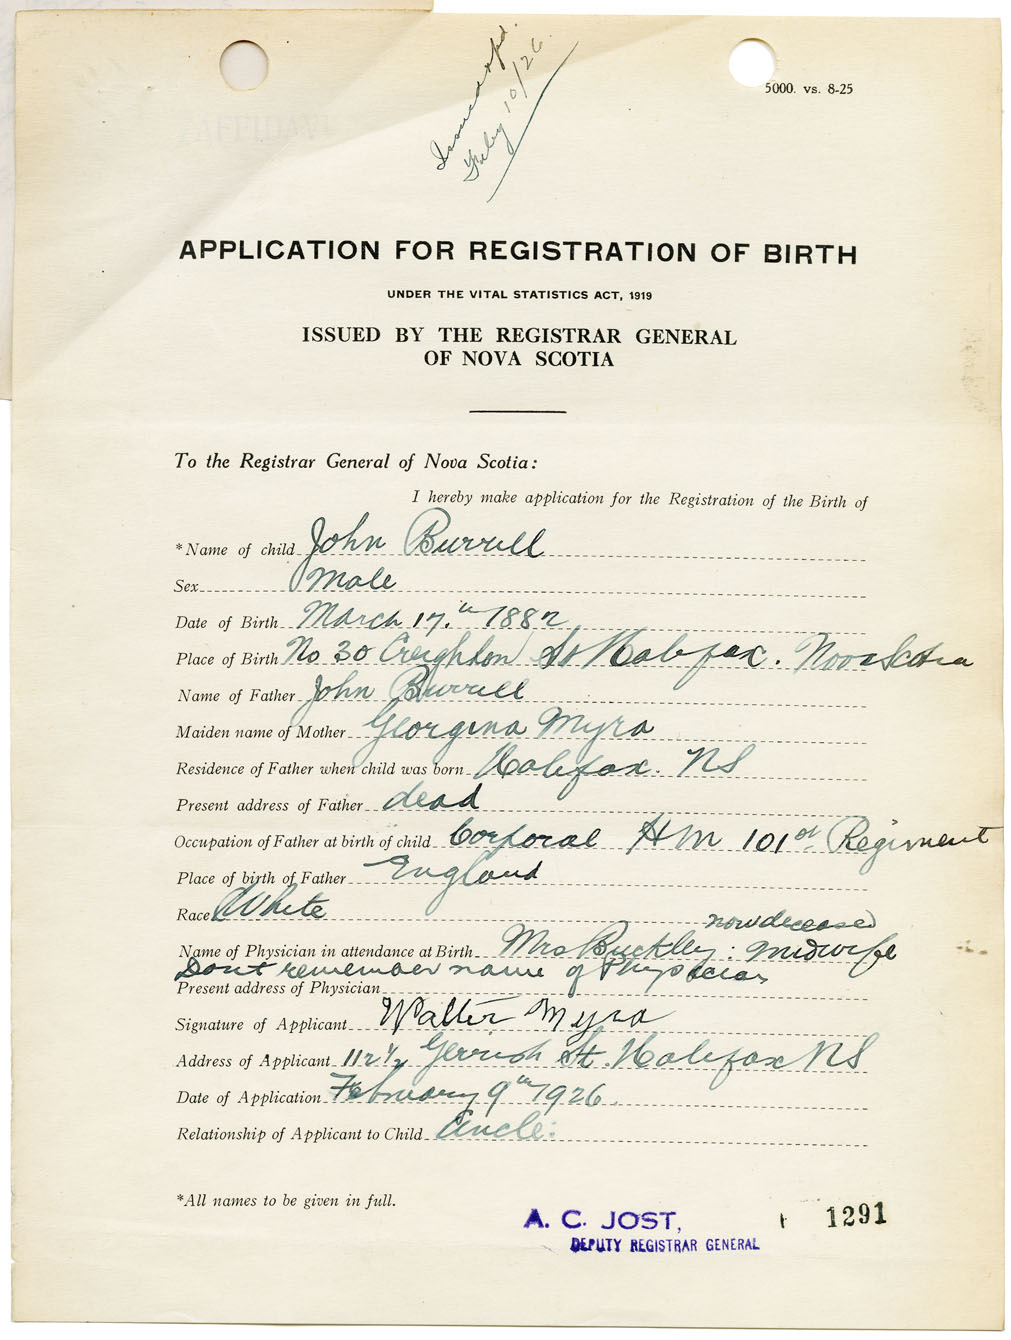 Issued
Feby 10/26.
5000. vs. 8-25
AFFIDAVIT
APPLICATION FOR REGISTRATION OF BIRTH
UNDER THE VITAL STATISTICS ACT, 1919
ISSUED BY THE REGISTRAR GENERAL
OF NOVA SCOTIA
To the Registrar General of Nova Scotia:
I hereby make application for the Registration of the Birth of
*Name of child John Burrell
Sex Male
Date of Birth March 17.th 1882
Place of Birth No 30 Creighton St Halifax. Nova Scotia
Name of Father John Burrell
Maiden name of Mother Georgina Myra
Residence of Father when child was born Halifax. NS
Present address of Father dead
Occupation of Father at birth of child Corporal HM 101st Regiment
Place of birth of Father England
Race White
now deceased
Name of Physician in attendance at Birth Mrs Buckley: midwife
Dont remember name of Physician
Present address of Physician
Signature of Applicant Walter Myra
Address of Applicant 112½ Gerrish St. Halifax NS
Date of Application February 9th 1926.
Relationship of Applicant to Child Uncle:
*All names to be given in full.
A. C. JOST,
DEPUTY REGISTRAR GENERAL
1291